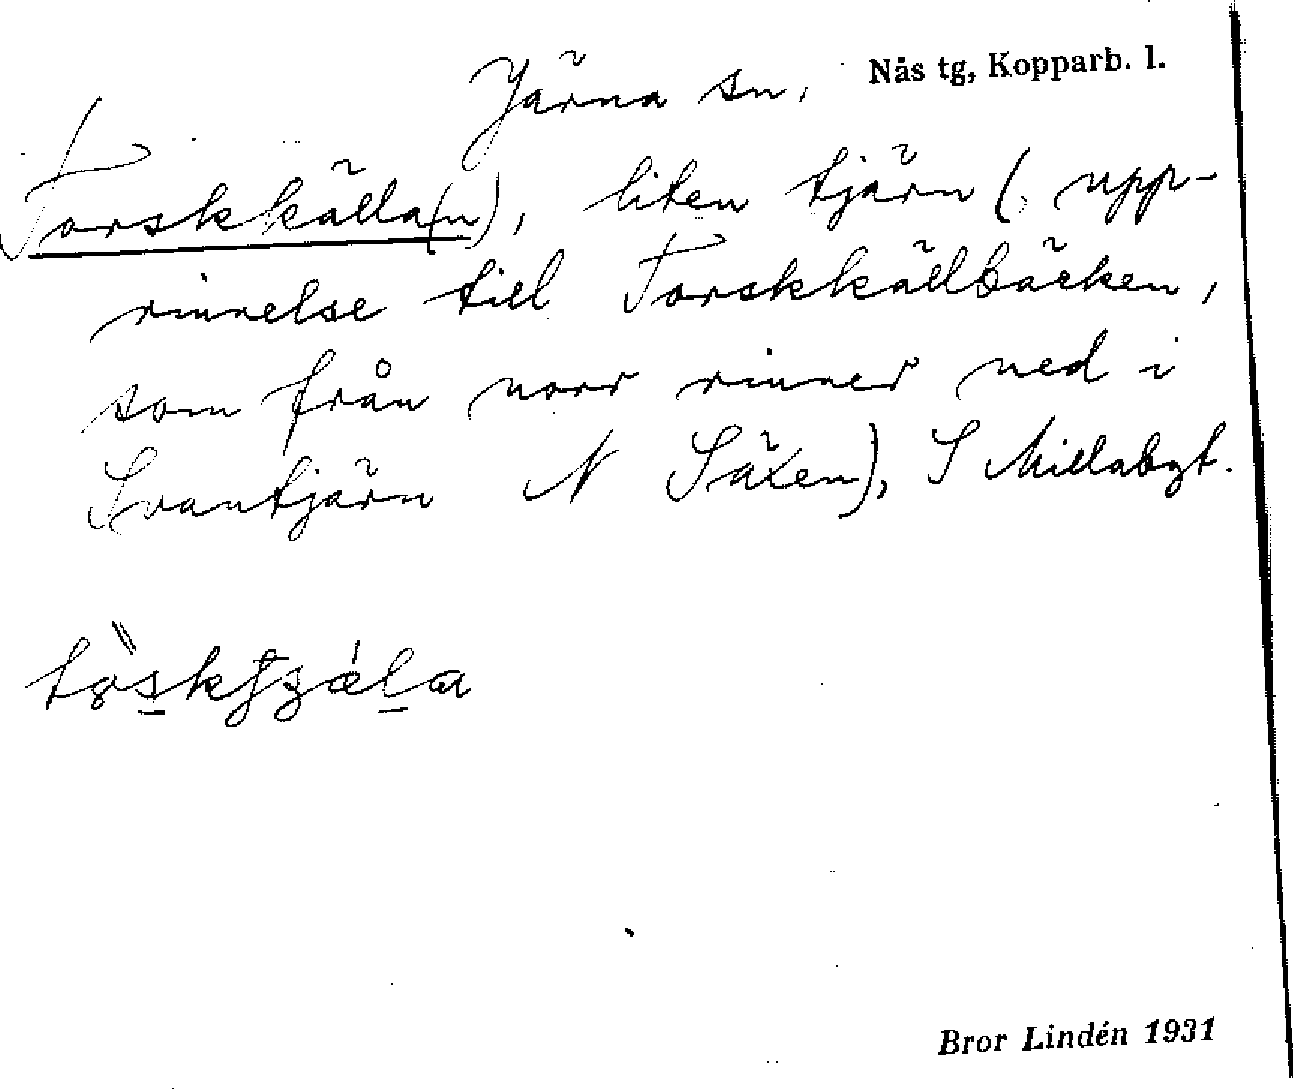 Järna sn. Nås tg, Kopparb. l.
Torskkälla(n), liten tjärn (upp-
rinnelse till Torskkällbäcken,
som från norr rinner ned i
Svantjärn N Säxen), S Millabgt.
Bror Lindén 1931